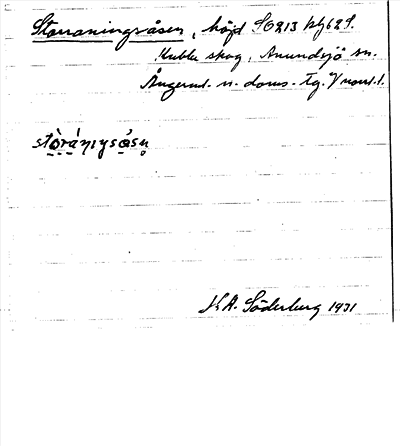 Storraningsåsen, höjd SO213 hg62S.
Kubbe skog, Anundsjö sn.
Ångerml. n. doms. tg.
stòráŋıŋsåsn̥
K.A. Söderberg 1931